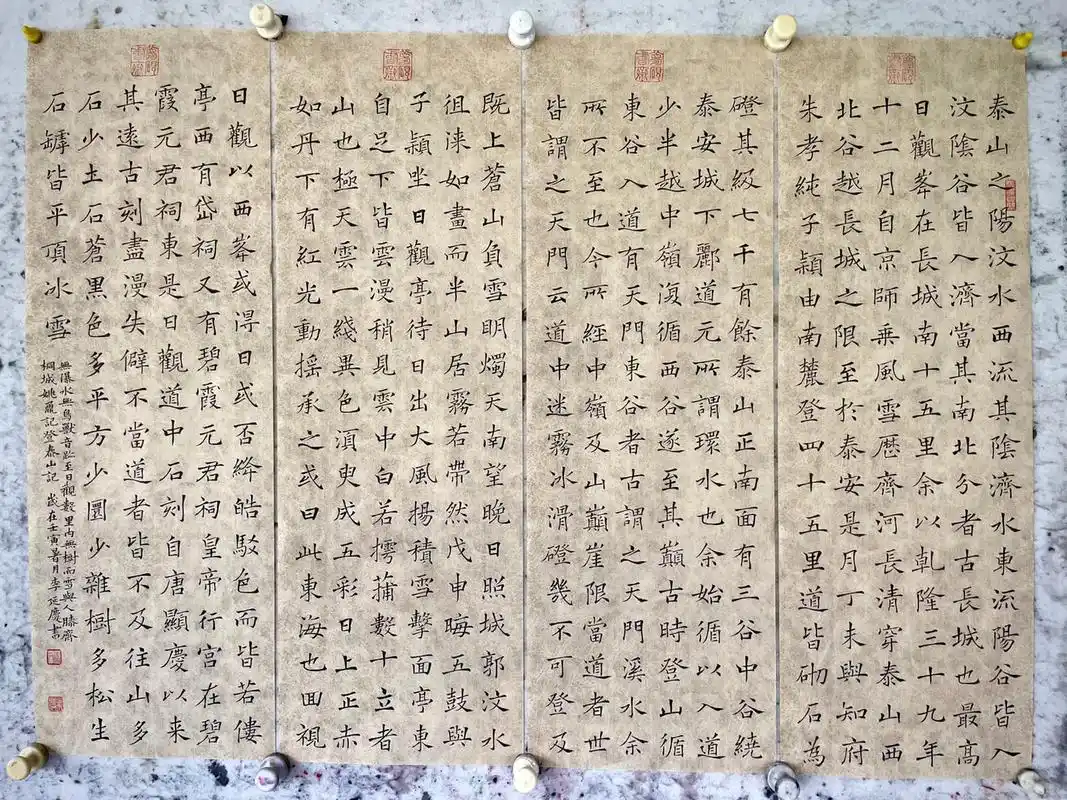 泰山之陽汶水西流其陰濟水東流陽谷皆入
汶陰谷皆入濟當其南北分者古長城也最高
日觀峯在長城南十五里余以乹隆三十九年
十二月自京師乗風雪歷齊河長清穿泰山西
北谷越長城之限至於泰安是月丁未與知府
朱孝純子穎由南麓登四十五里道皆砌石為
磴其級七千有餘泰山正南面有三谷中谷繞
泰安城下酈道元所謂環水也余始循以入道
少半越中嶺復循西谷遂至其巔古時登山循
東谷入道有天門東谷者古謂之天門溪水余
所不至也今所經中嶺及山巔崖限當道者世
皆謂之天門云道中迷霧冰滑磴幾不可登及
既上蒼山負雪明燭天南望晚日照城郭汶水
徂徠如畫而半山居霧若帶然戊申晦五鼓與
子穎坐日觀亭待日出大風揚積雪擊面亭東
自足下皆雲漫稍見雲中白若摴蒱數十立者
山也極天雲一綫異色湏臾成五彩日上正赤
如丹下有紅光動搖承之或曰此東海也回視
日觀以西峯或得日或否絳皓駁色而皆若僂
亭西有岱祠又有碧霞元君祠皇帝行宮在碧
霞元君祠東是日觀道中石刻自唐顯慶以来
其遠古刻盡漫失僻不當道者皆不及往山多
石少土石蒼黑色多平方少圜少雜樹多松生
石罅皆平頂冰雪
無瀑水無鳥獸音跡至日觀數里內無樹而雪與人膝齊
桐城姚鼐記登泰山記 歲在壬寅暑月李延慶書